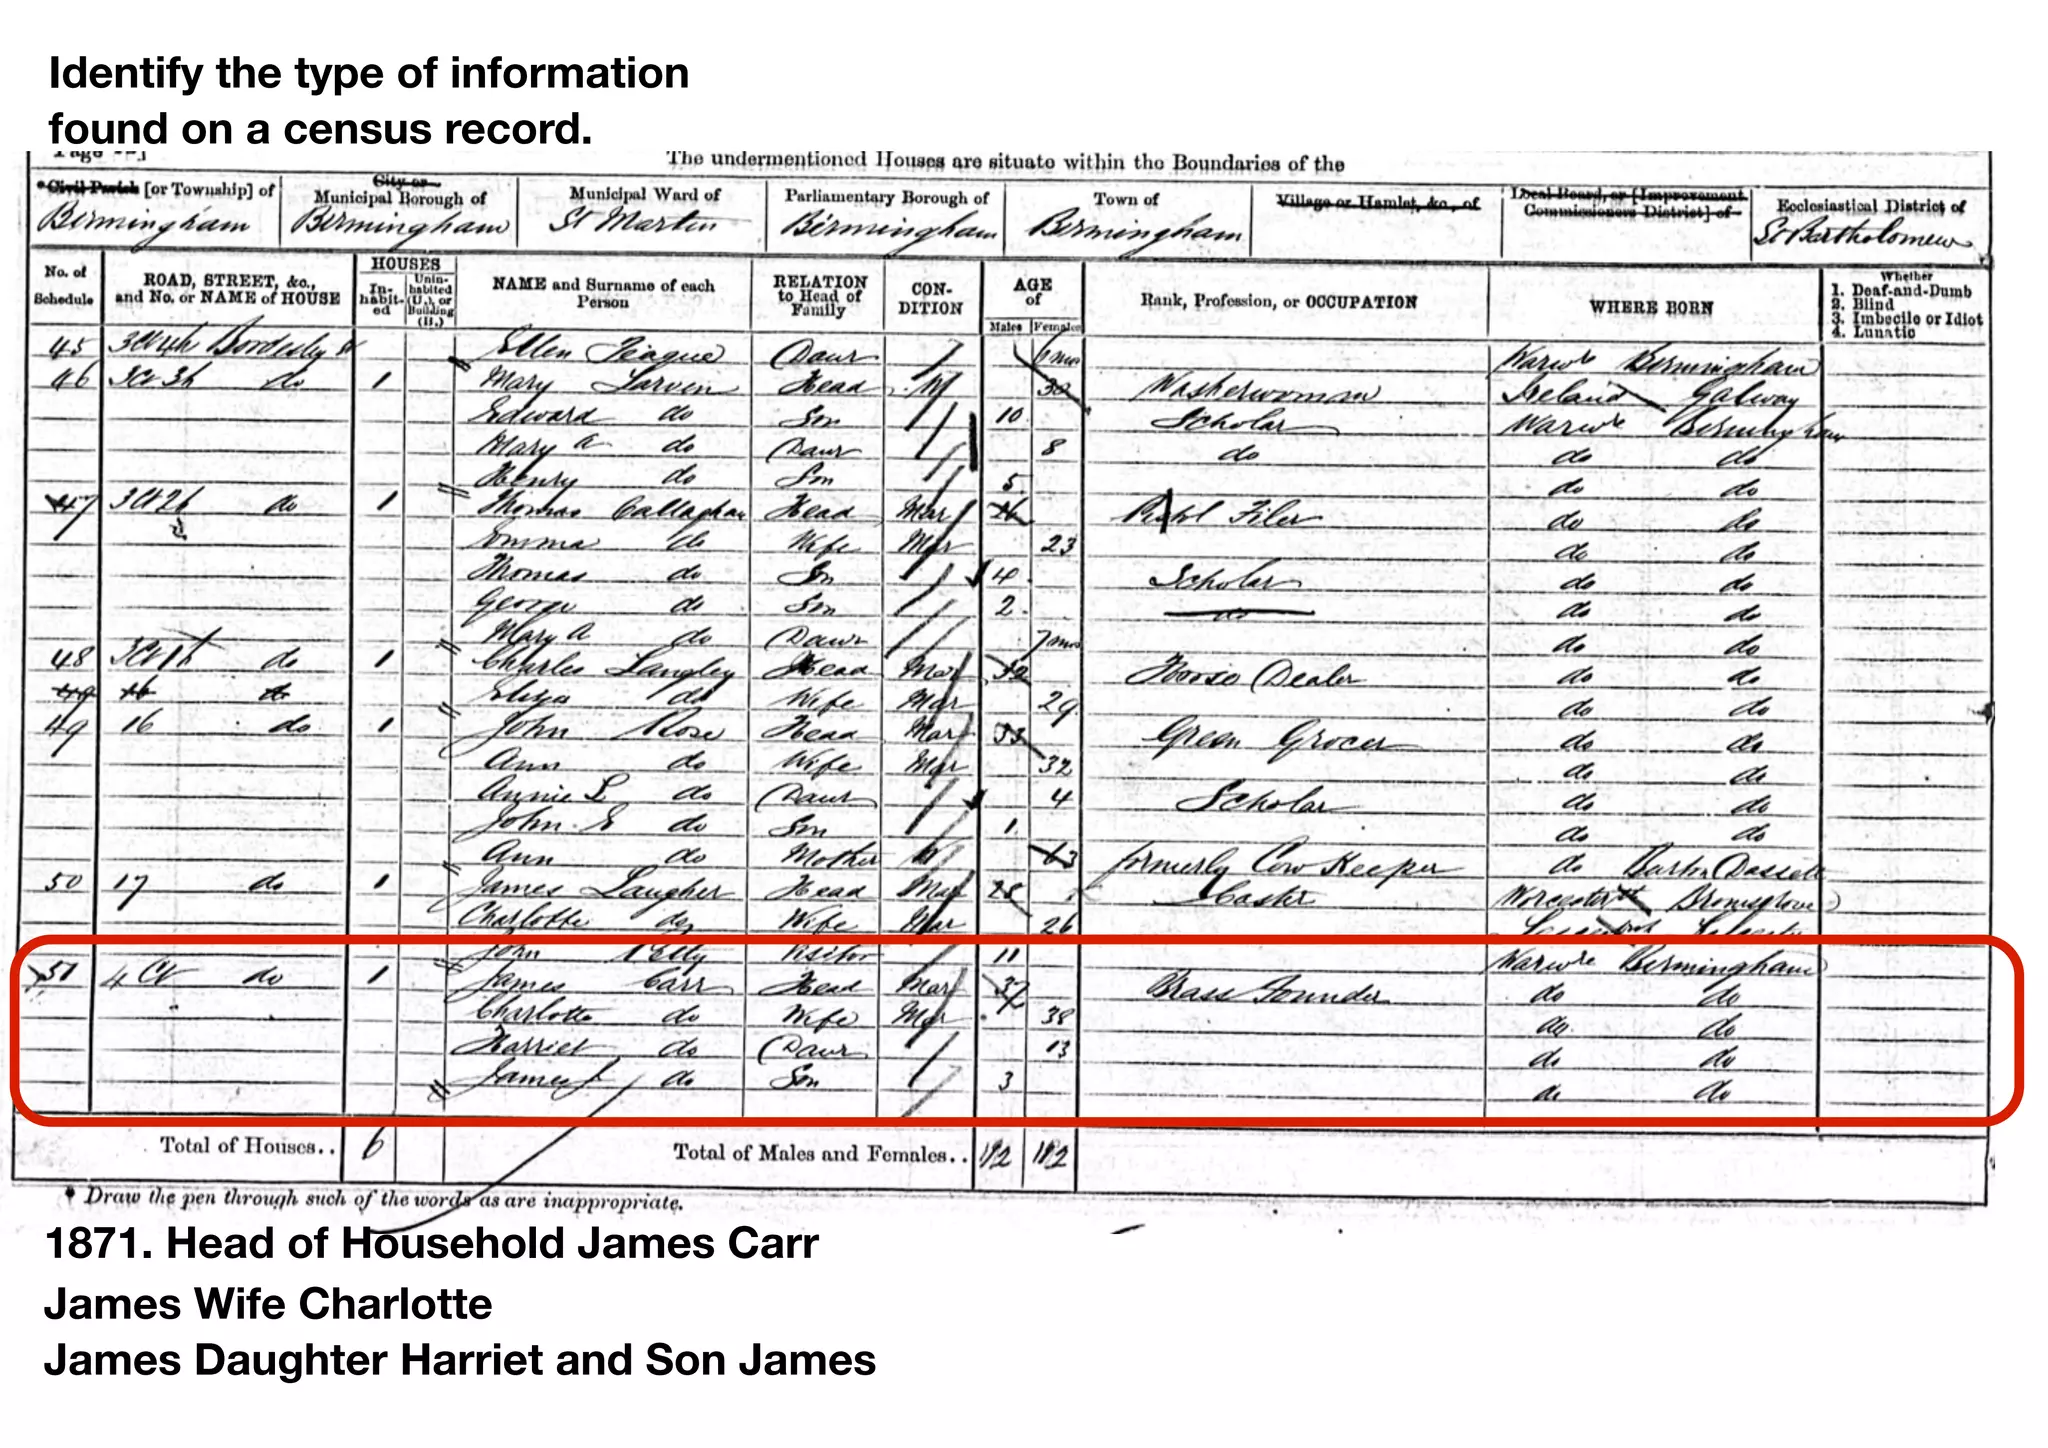 Identify the type of information
found on a census record.
The undermentioned Houses are situate within the Boundaries of the
*Civil Parish [or Township] of
City or
Municipal Borough of
Municipal Ward of
Parliamentary Borough of
Town of
Village or Hamlet, &c., of
Local Board, or [Improvement
Commissioners District] of
Ecclesiastical District of
Birmingham Birmingham St Martin Birmingham Birmingham St Bartholomew
No. of
Schedule
ROAD, STREET, &c.,
and No. or NAME of HOUSE
HOUSES
In-
habit-
ed
Unin-
habited
(U.), or
Building
(B.)
NAME and Surname of each
Person
RELATION
to Head of
Family
CON-
DITION
AGE
of
Males Females
Rank, Profession, or OCCUPATION
WHERE BORN
Whether
1. Deaf-and-Dumb
2. Blind
3. Imbecile or Idiot
4. Lunatic
45 Ellen Teague Daur Birmingham
46 do 1 Mary Head 30 Washerwoman Ireland Galway
Edward do Son 10 Scholar Birmingham
Mary A do Daur 8 do do do
Henry do Son 5 do do
47 do 1 Thomas Callaghan Head Mar Filer do do
Emma do Wife Mar 23 do do
Thomas do Son 4 Scholar do do
George do Son 2 do do do
Mary A do Daur 7 mos do do
48 do 1 Charles Langley Head Mar 32 Horse Dealer do do
49 16 do Eliza do Wife Mar 29 do do
49 16 do 1 John Rose Head Mar 33 Green Grocer do do
Ann do Wife Mar 32 do do
Annie L do Daur 4 Scholar do do
John E do Son 1 do do
Ann do Mother W 63 formerly Cow Keeper do Dassett
50 17 do 1 James Laugher Head Mar 28 Caster Worcester Bromsgrove
Charlotte do Wife Mar 26
John Visitor 11 Birmingham
51 4 Ct do 1 James Carr Head Mar 37 Brass Founder do do
Charlotte do Wife Mar 38 do do
Harriet do Daur 13 do do
James J do Son 3 do do
Total of Houses.. 6 Total of Males and Females.. 12 12
* Draw the pen through such of the words as are inappropriate.
1871. Head of Household James Carr
James Wife Charlotte
James Daughter Harriet and Son James